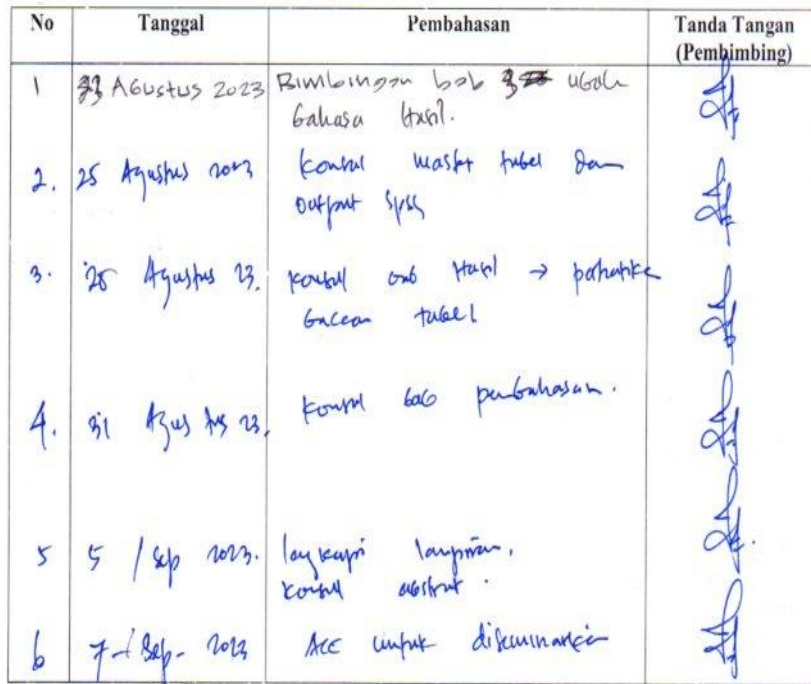 No Tanggal Pembahasan Tanda Tangan
(Pembimbing)
1 23 Agustus 2023 Bimbingan bab 3 ubah
bahasa Hasil.
2. 25 Agustus 2023 Konsul master tabel dan
output spss
3. 28 Agustus 23. Konsul bab Hasil →
bacaan tabel.
4. 31 Agustus 23. Konsul bab pembahasan.
5 5 / Sep 2023. lengkapi lampiran.
Konsul abstrak.
6 7 - Sep - 2023 ACC untuk diseminarkan